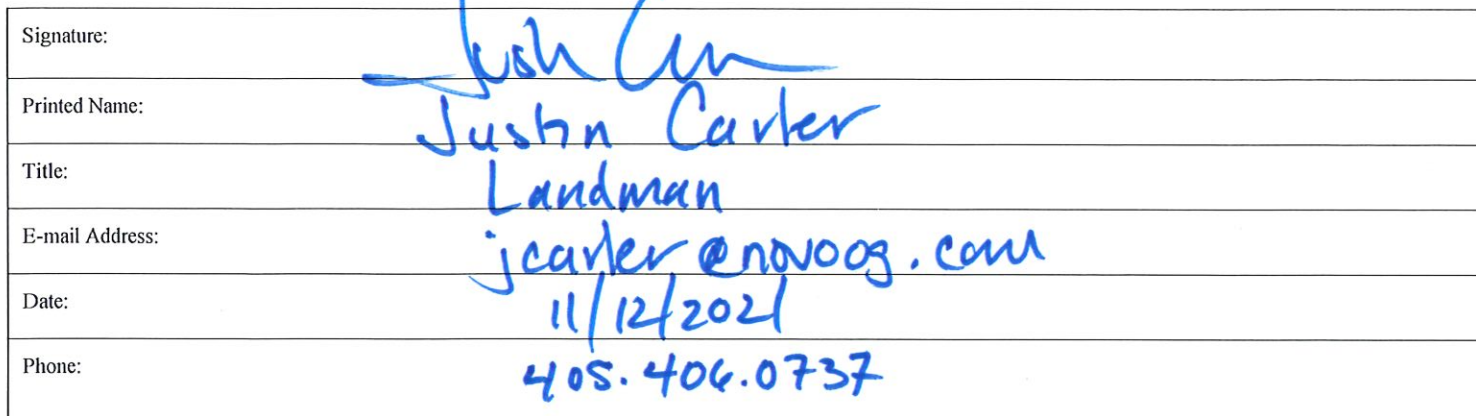 Signature: Justin Carter
Printed Name: Justin Carter
Title: Landman
E-mail Address: jcarter@novoog.com
Date: 11/12/2021
Phone: 405.406.0737